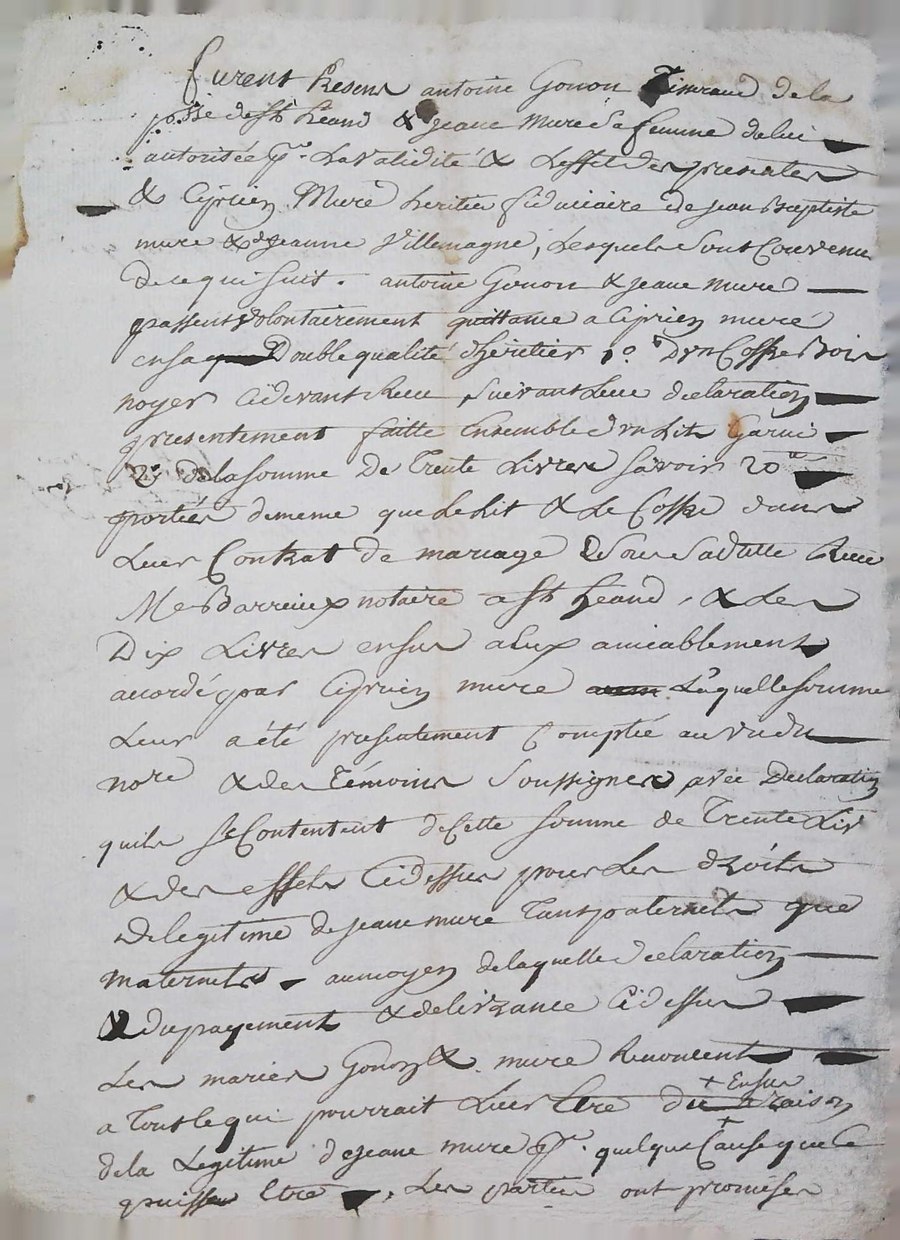 furent presens antoine Gonon de la
de St heand & jeane Mure sa femme de lui
autorisée pr. la validité & l'effet des presentes
& Ciprien Mure heritier fiduciaire de jean Baptiste
mure & de jeanne Villemagne, lesquels sont convenu
de ce qui suit. antoine Gonon & jeane mure
passent volontairement quittance a Ciprien mure
en sa double qualité d'héritier 1º d'un Coffre Bois
noyer cidevant Receu suivant leur declaration
presentement faitte Ensemble d'un Lit Garni
2º de la somme de Trente Livres savoir 20 ll
portées de meme que le Lit & le Coffre dans
Leur Contrat de mariage sous sa datte Receu
Me notaire a St heand, & les
Dix Livres en sus a Eux amiablement
accordé par Ciprien mure Laquelle somme
Leur a été presentement Comptée au vu du
nore & des Témoins Soussignes avec Declaration
quils se Contentent de Cette somme de Trente Liv
& des effets Cidessus pour les droits
de legitime de jeane mure Tant paternels que
maternels, au moyen de laquelle declaration
& du payement & delivrance Cidessus
Les maries Gonon & mure Renoncent
a Tout ce qui pourrait Leur Etre du + Ensus a raison
de la Legitime de jeane mure pr. quelque Cause que Ce
puisse Etre, Les parties ont promises